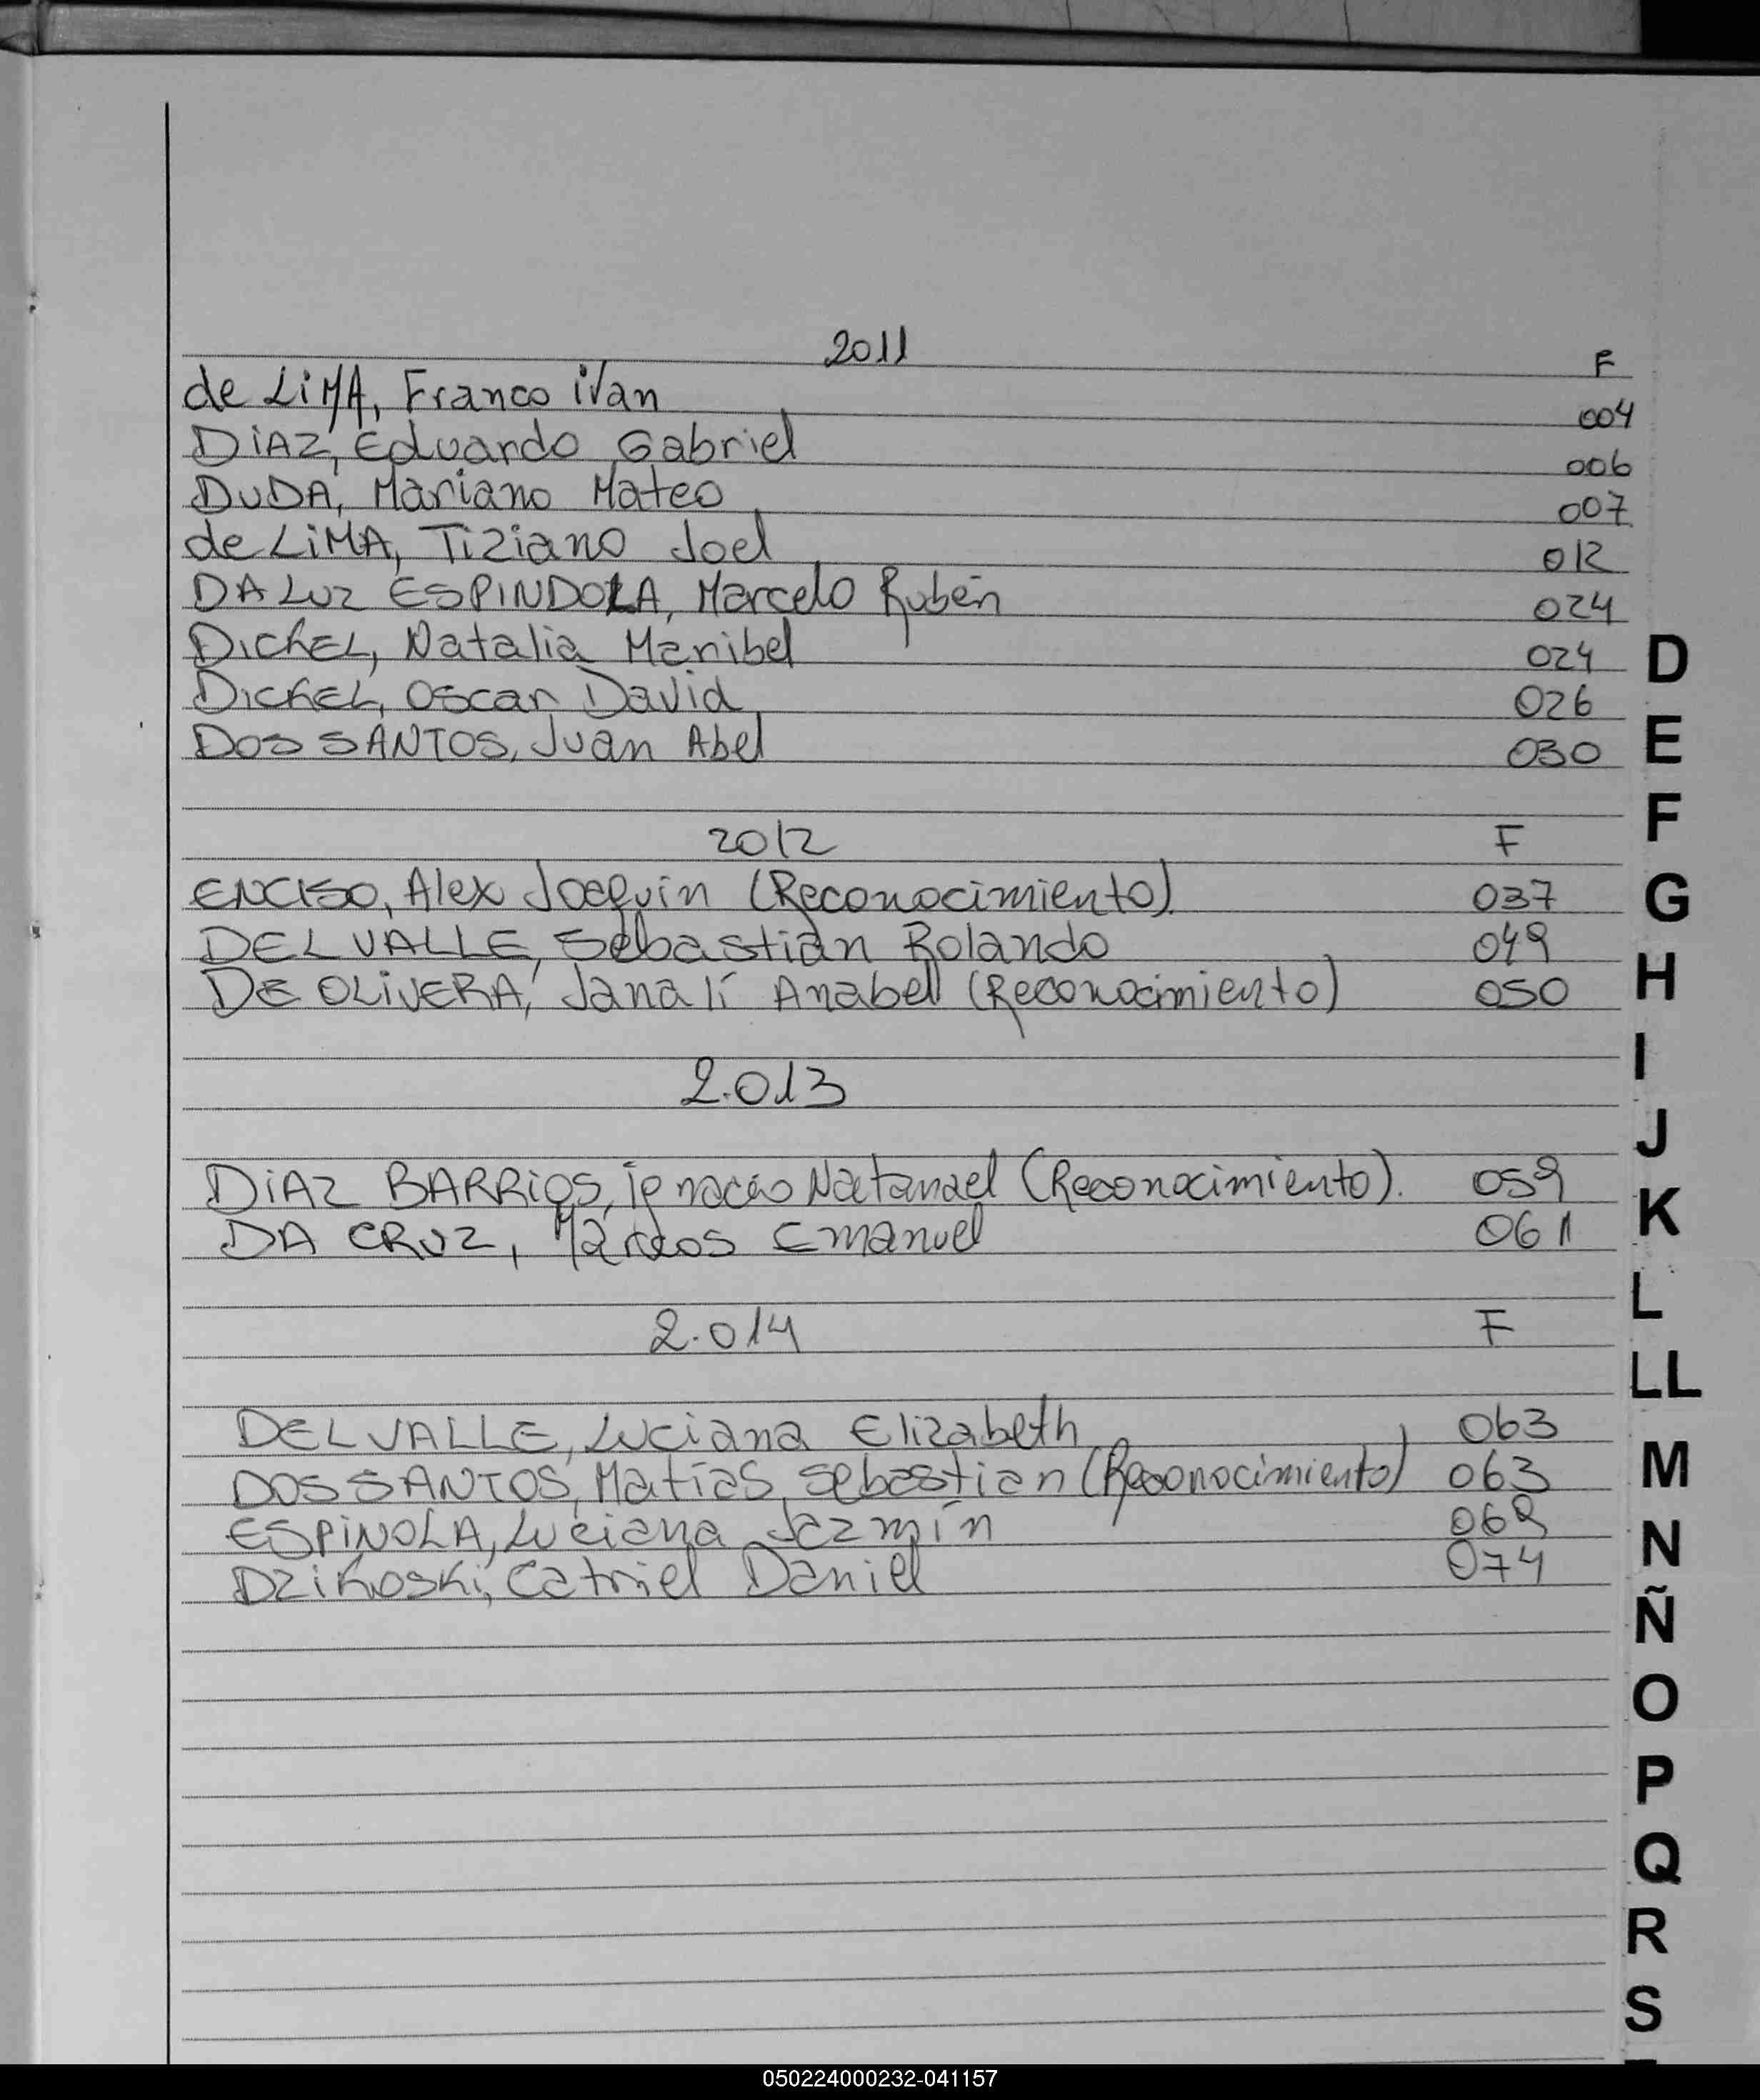 2011 F
de LiMA, Franco iván 004
DiAZ, Eduardo Gabriel 006
DUDA, Mariano Mateo 007
de LiMA, Tiziano Joel 012
DA LUZ ESPINDOLA, Marcelo Rubén 024
DICKEL, Natalia Maribel 024
DICKEL, Oscar David 026
DOS SANTOS, Juan Abel 030
2012 F
ENCISO, Alex Joaquin (Reconocimiento) 037
DEL VALLE, Sebastián Rolando 049
DE OLIVERA, Janalí Anabel (Reconocimiento) 050
2.013
DiAZ BARRiOS, ignacio Natanael (Reconocimiento). 059
DA CRUZ, Marcos Emanuel 061
2.014 F
DEL VALLE, Luciana Elizabeth 063
DOS SANTOS, Matías Sebastian (Reconocimiento) 063
ESPiNOLA, Luciana Jazmín
DZiKOSKi, Catriel Daniel 074
D
E
F
G
H
I
J
K
L
LL
M
N
Ñ
O
P
Q
R
S
050224000232-041157